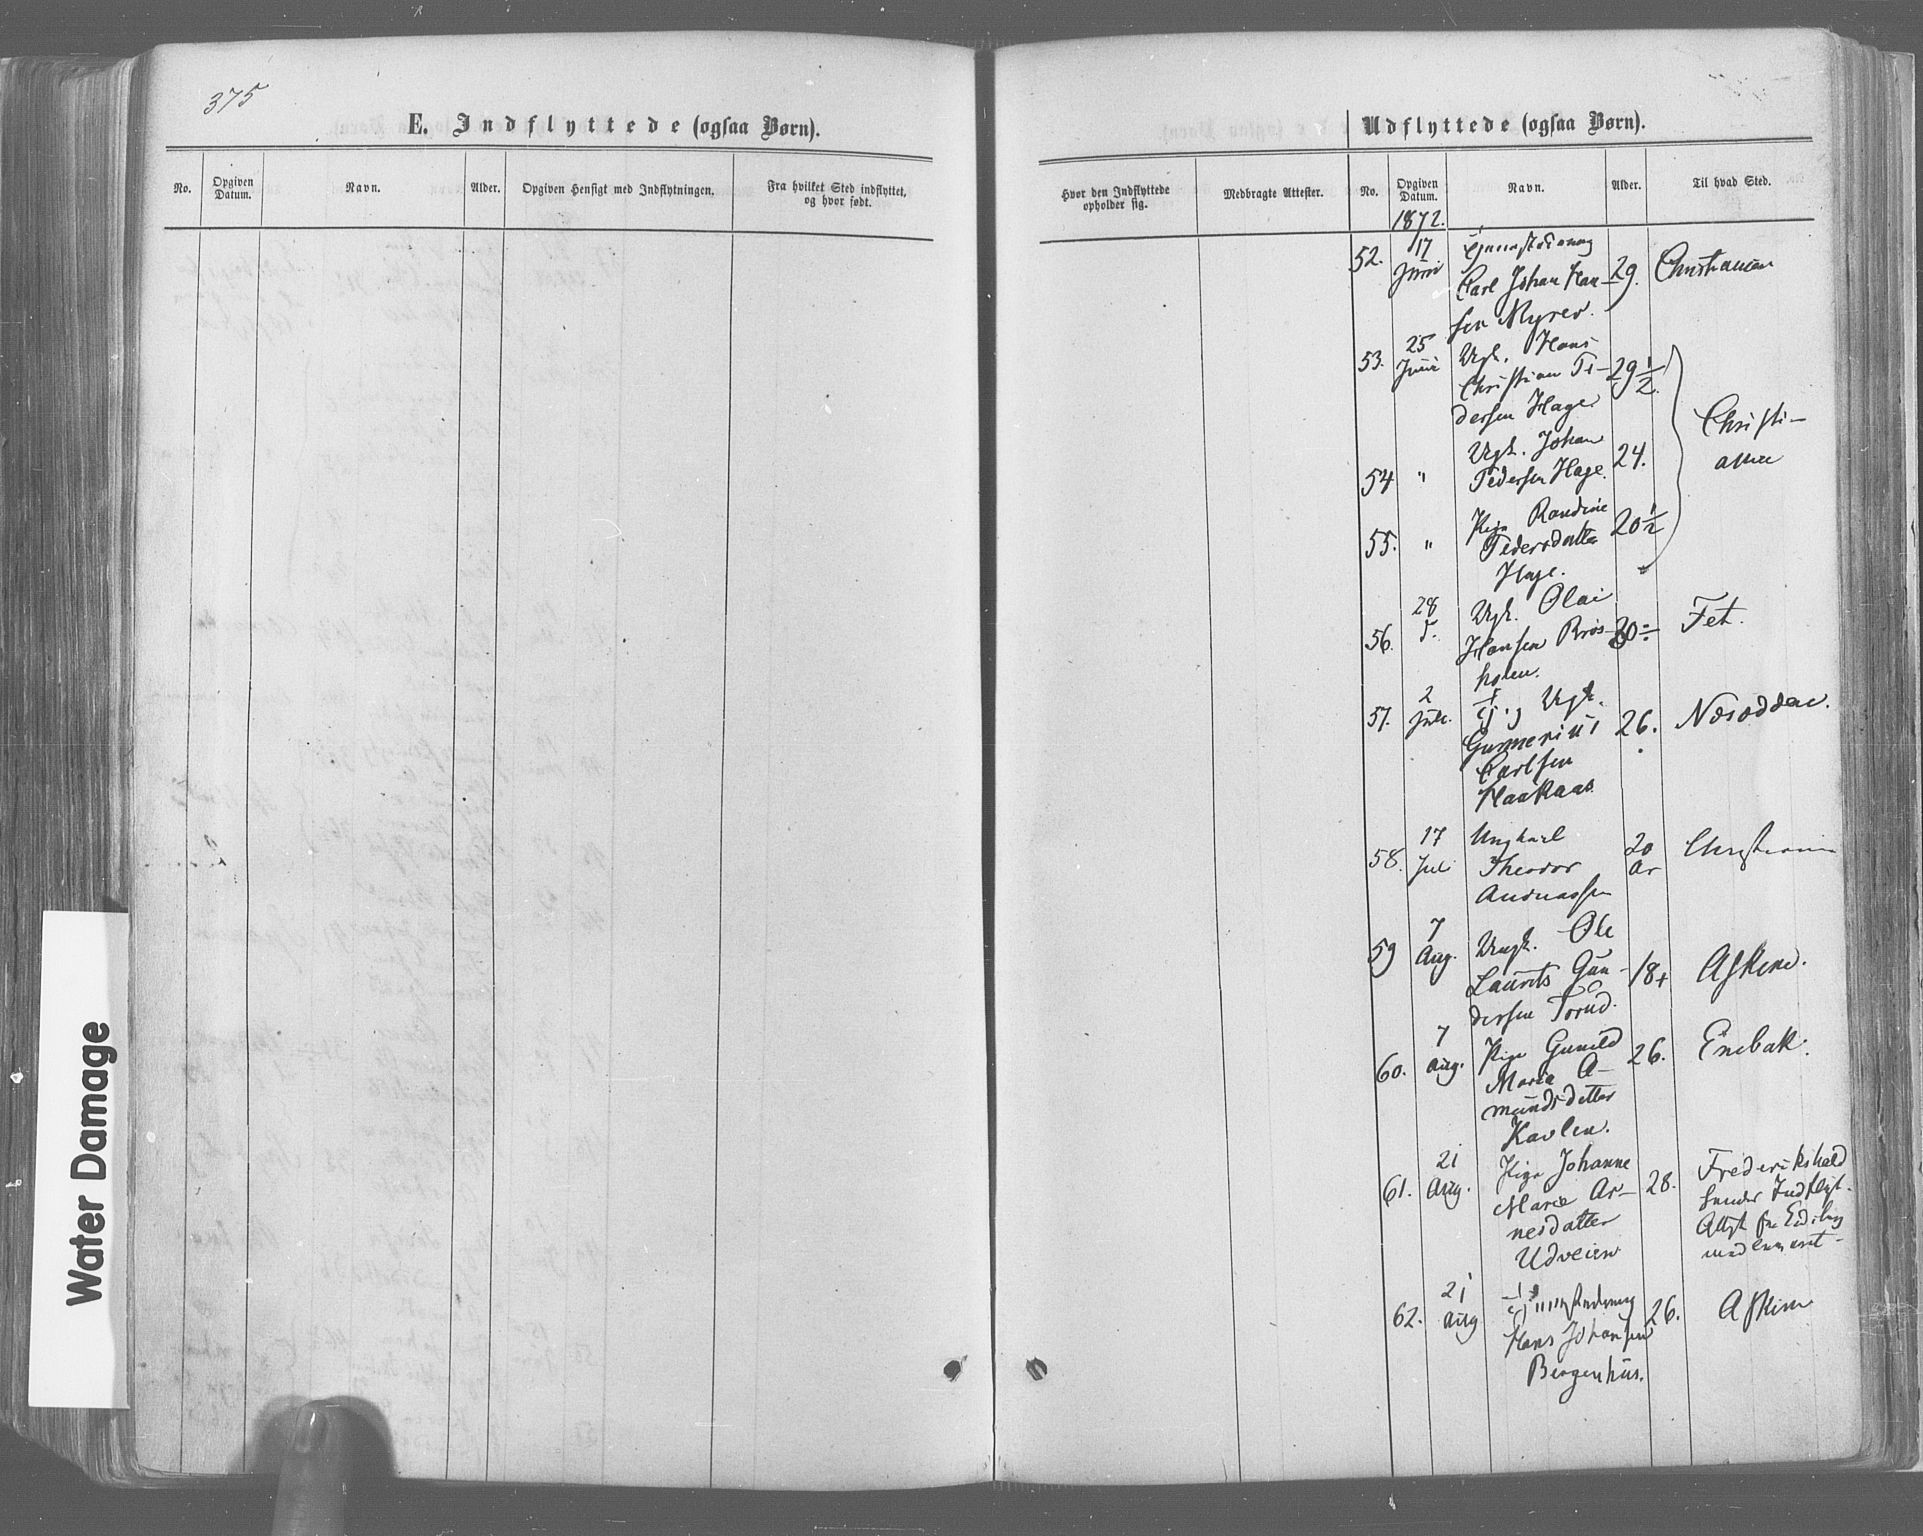 375
E. Indflyttede (ogsaa Børn).
No.
Opgiven Datum.
Navn.
Alder.
Opgiven Hensigt med Indflytningen.
Fra hvilket Sted indflyttet, og hvor født.
Udflyttede (ogsaa Børn).
Hvor den Indflyttede opholder sig.
Medbragte Attester.
No.
Opgiven Datum.
Navn.
Alder.
Til hvad Sted.
1872.
52. 17 Juni
Carl Johan Han-
sen Myrer. 29.
53. 25 Juni Ugk. Hans
Christian Pe-
dersen Hage 29½
Christi-
ania
54 " Ugk. Johan
Pedersen Hage. 24.
55. " Pige Randine
Pedersdatter
Hage. 20½
56. 28 d. Ugk. Olai
Hansen
holen. 30 Fet.
57. 2 Juli Ugk.
Gunnerius
Carlsen
Haakaas 26. Nesodden.
58. 17 Juli Ungkarl
Theodor
Andreassen 20 Ar Christiania
59 7 Aug. Ungk. Ole
Laurits Gun-
dersen Torud. 18+ Askim.
60. 7 Aug. Pige Gunild
Maria A-
mundsdatter
Kavlen. 26. Enebak.
61. 21 Aug. Pige Johanne
Marie Ar-
nesdatter
Udveien 28. Frederikshald
62. 21 Aug
Hans Johansen
Bergenhus. 26. Askim
Water Damage